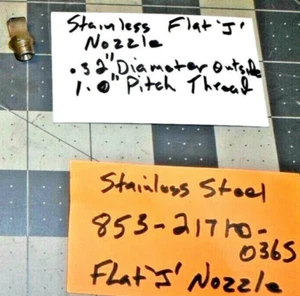 Stainless Flat 'J'
Nozzle
.32" Diameter Outside
1.0" Pitch Thread
Stainless Steel
853-21710-
0365
Flat 'J' Nozzle